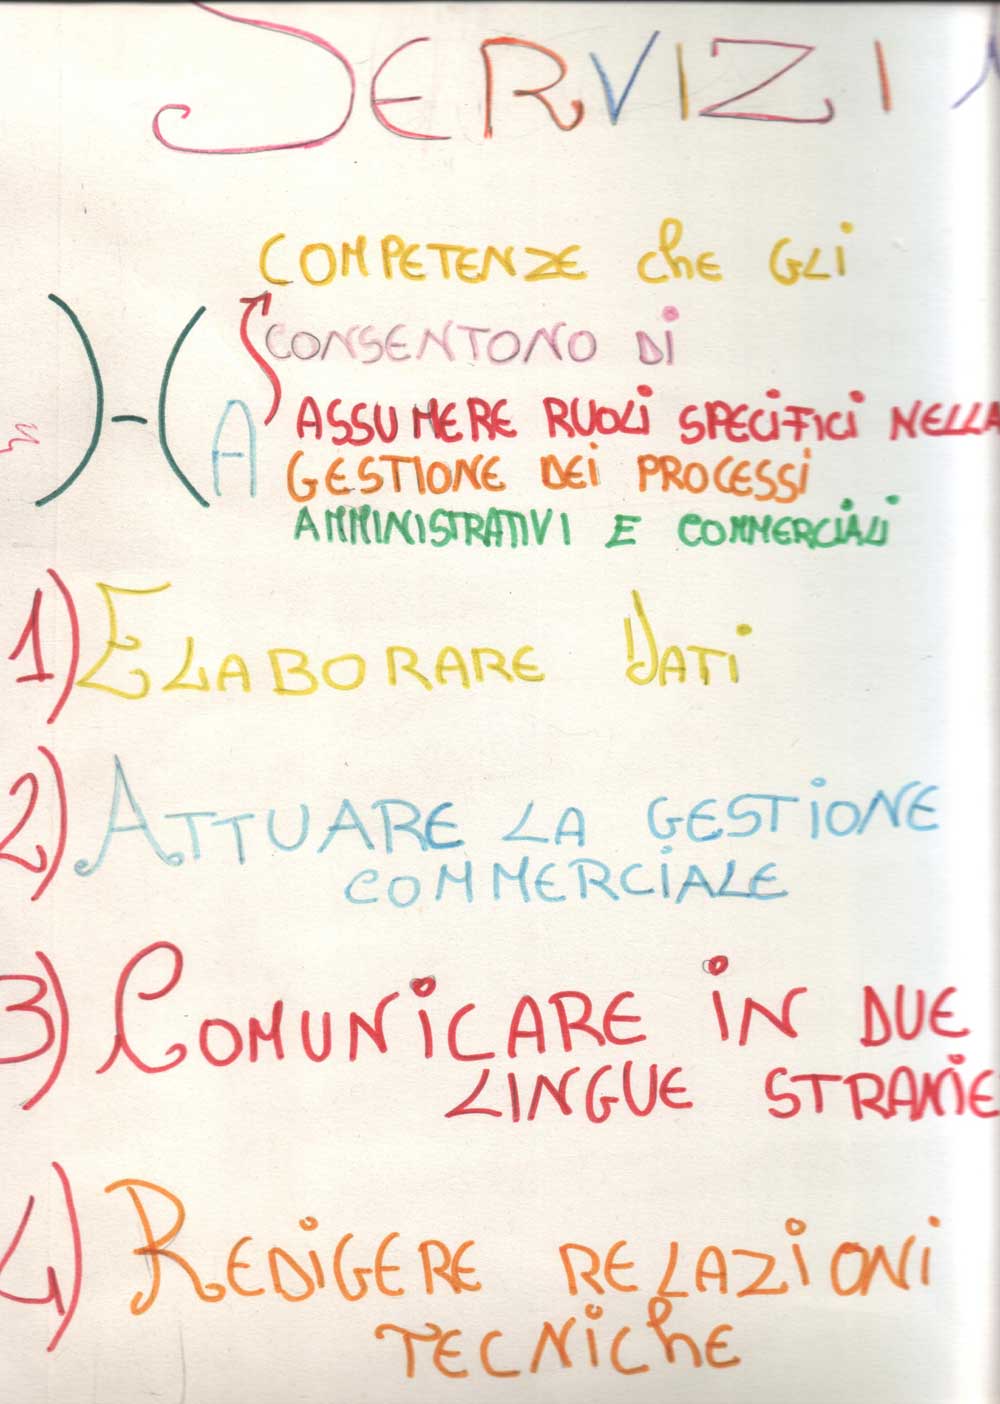 SERVIZI
COMPETENZE che GLi
CONSENTONO Di
A ASSUMERE RUOLi SPECiFiCi NELLA
GESTIONE DEi PROCESSi
AMMINISTRATIVI E COMMERCIALi
1) ELABORARE DATi
2) ATTUARE LA GESTiONE
COMMERCiALE
3) COMUNiCARE iN DUE
LINGUE STRANiE
4) REDiGERE RELAZiONi
TECNiChE